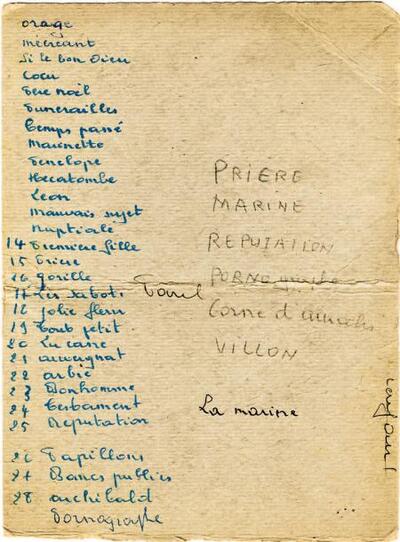 orage
mécréant
Si le bon Dieu
Cocu
Père noël
Funerailles
Temps passé
Marinette
Penelope
Hecatombe
Leon
Mauvais sujet
Nuptiale
14 Première fille
15 Prière
16 gorille
17 Les sabots
18 jolie fleur
19 Tout petit
20 La cane
21 auvergnat
22 arbre
23 Bonhomme
24 Testament
25 Reputation
26 Papillons
27 Bancs publics
28 archibald
Pornographe
PRIERE
MARINE
REPUTATION
PORNOgraphe
Corne d'aurochs
VILLON
La marine